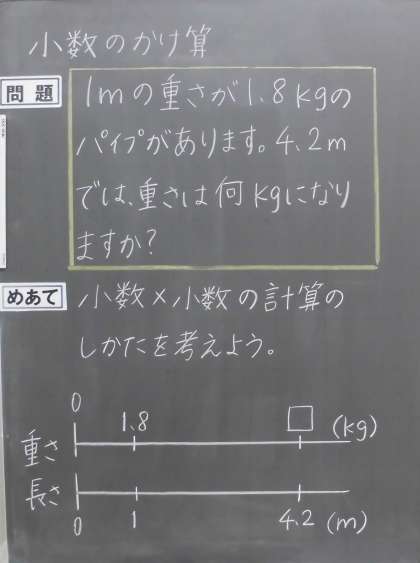 小数のかけ算
問題
1mの重さが1.8kgの
パイプがあります。4.2m
では、重さは何kgになり
ますか?
めあて
小数×小数の計算の
しかたを考えよう。
0 1.8 □ (kg)
重さ
長さ
0 1 4.2 (m)